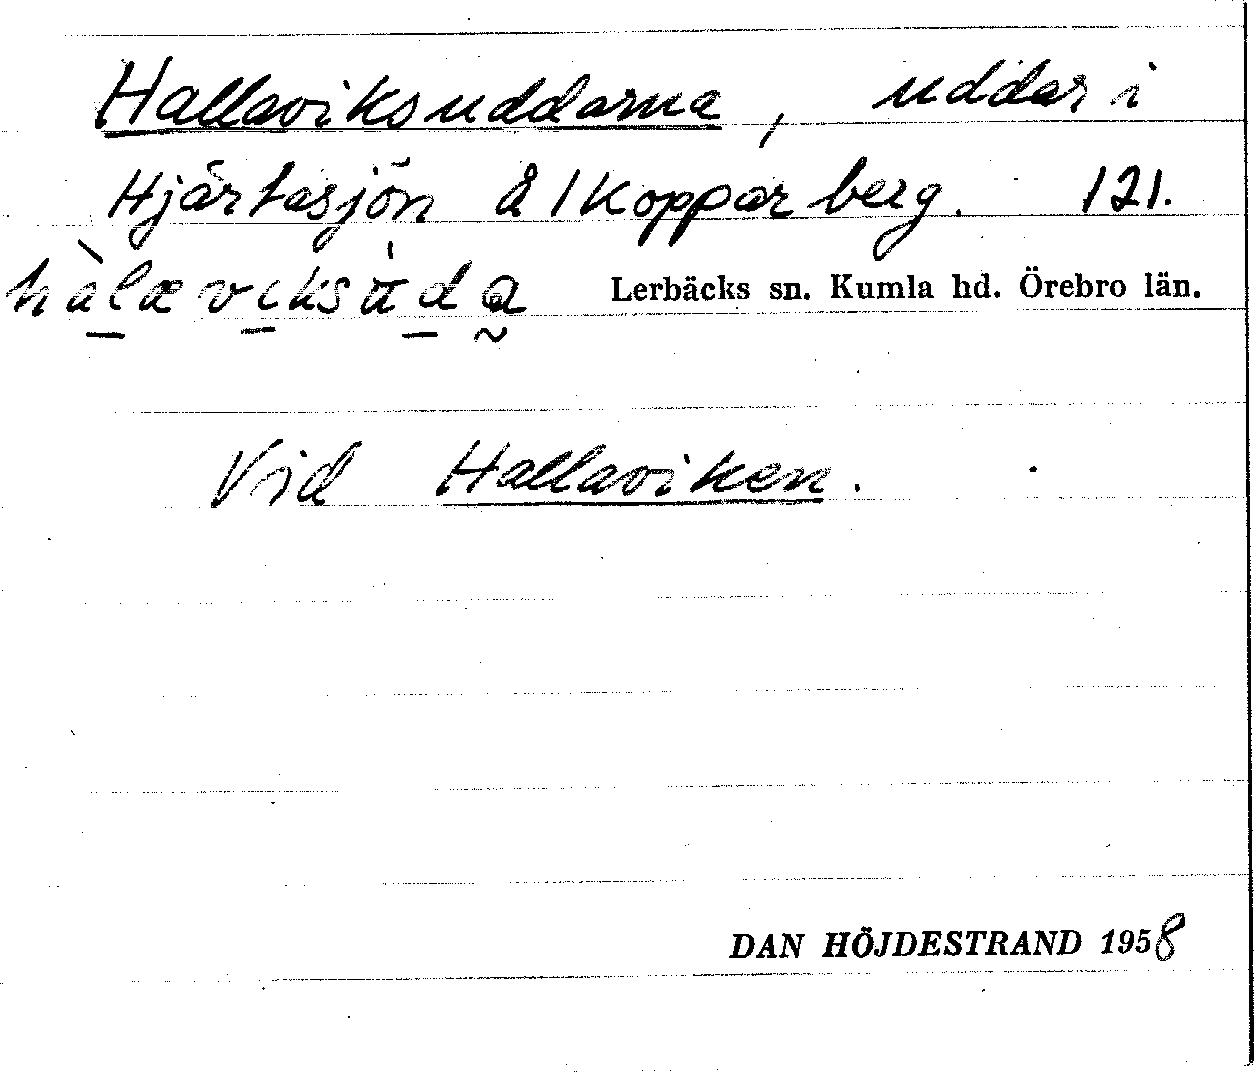 Hallaviksuddarna, uddar i
Hjärtasjön å 1 Kopparberg. 121.
Lerbäcks sn. Kumla hd. Örebro län.
Vid Hallaviken.
DAN HÖJDESTRAND 1958